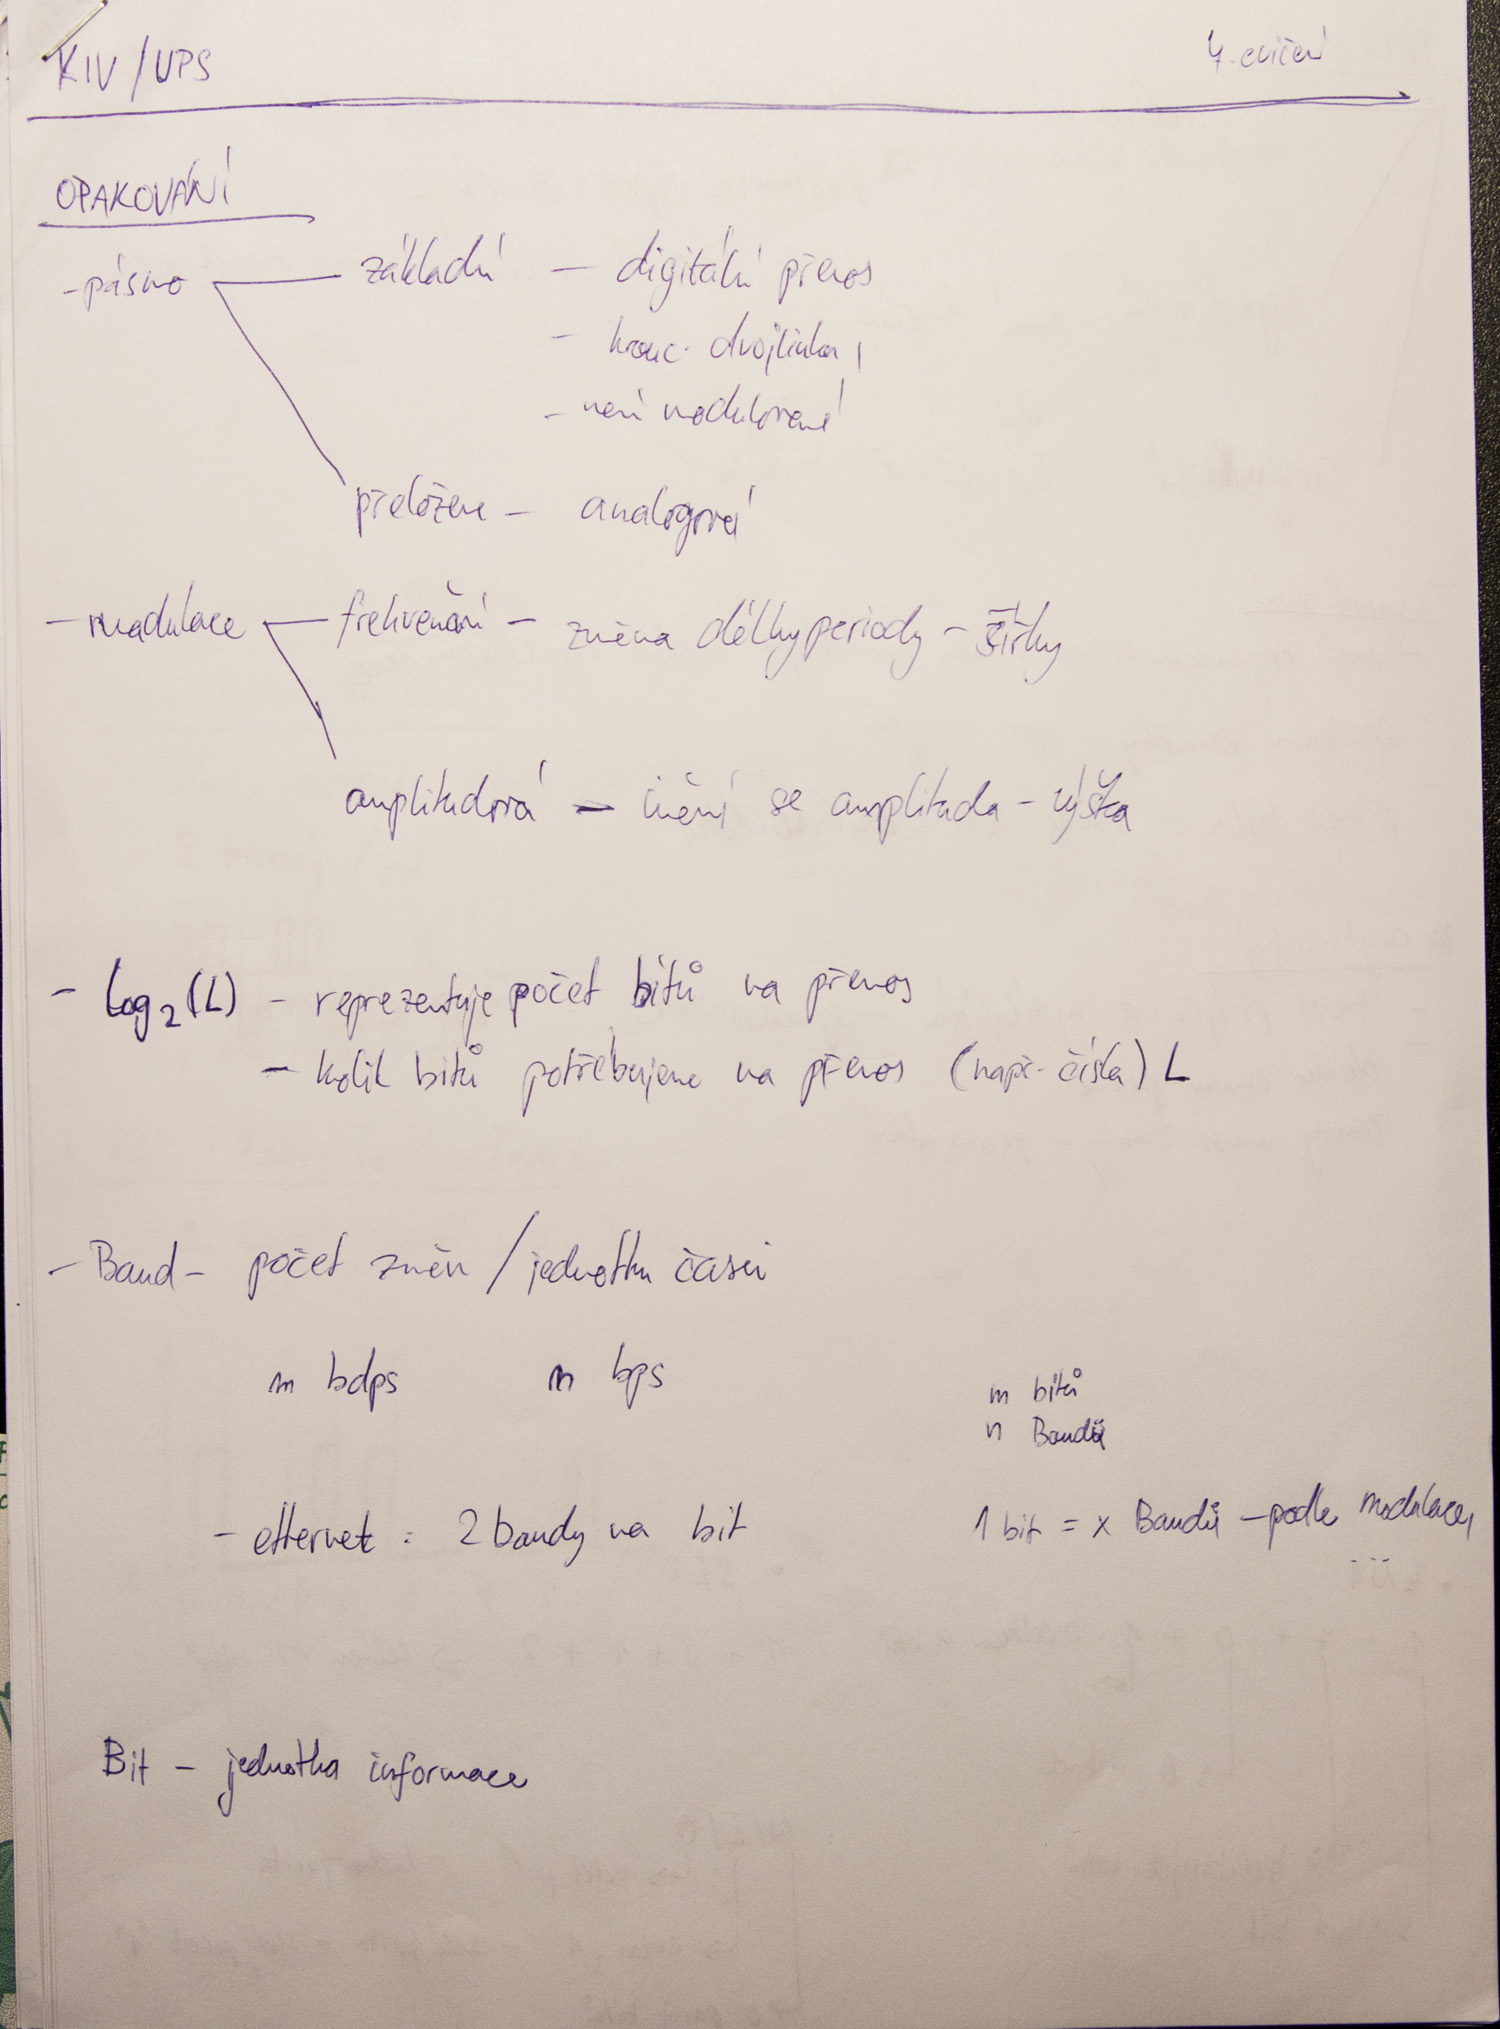 KIV/UPS
4. cvičení
OPAKOVÁNÍ
- pásmo
základní - digitální přenos
- krouc. dvojlinka,
- není modulované
přeložené - analogové
- modulace
frekvenční - změna délky periody - šířky
amplitudová - mění se amplituda - výška
- log₂(L) - reprezentuje počet bitů na přenos
- kolik bitů potřebujeme na přenos (např. čísla) L
- Baud - počet změn / jednotku času
m bdps n bps
m bitů
n Baudů
- ethernet : 2 baudy na bit
1 bit = x Baudů - podle modulace,
...
Bit - jednotka informace